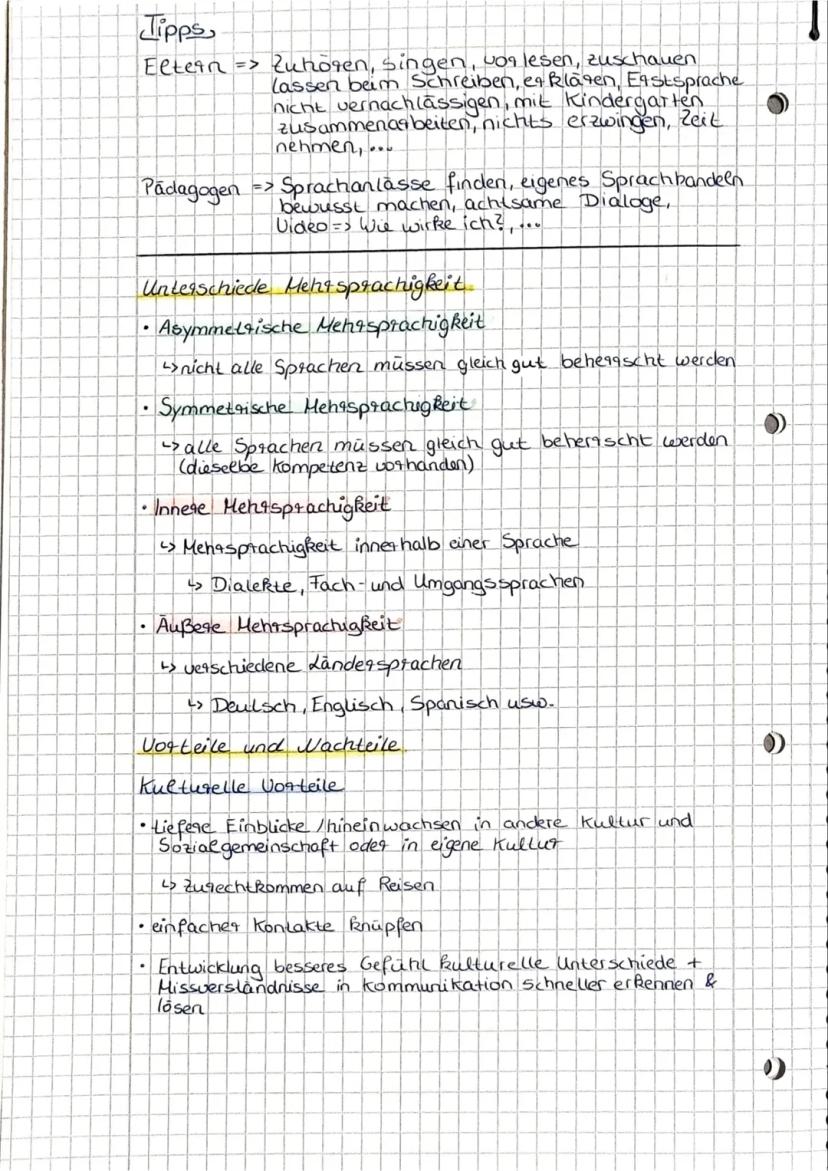 Tipps
Eltern => Zuhören, singen, vorlesen, zuschauen
lassen beim Schreiben, erklären, Erstsprache
nicht vernachlässigen, mit Kindergarten
zusammenarbeiten, nichts erzwingen, Zeit
nehmen, ...
Pädagogen => Sprachanlässe finden, eigenes Sprachhandeln
bewusst machen, achtsame Dialoge,
Video => Wie wirke ich?, ...
Unterschiede Mehrsprachigkeit
• Asymmetrische Mehrsprachigkeit
↳ nicht alle Sprachen müssen gleich gut beherrscht werden
• Symmetrische Mehrsprachigkeit
↳ alle Sprachen müssen gleich gut beherrscht werden
(dieselbe Kompetenz vorhanden)
• Innere Mehrsprachigkeit
↳ Mehrsprachigkeit innerhalb einer Sprache
↳ Dialekte, Fach- und Umgangssprachen
• Äußere Mehrsprachigkeit
↳ verschiedene Ländersprachen
↳ Deutsch, Englisch, Spanisch usw.
Vorteile und Nachteile
Kulturelle Vorteile
• tiefere Einblicke /hineinwachsen in andere Kultur und
Sozialgemeinschaft oder in eigene Kultur
↳ Zurechtkommen auf Reisen
• einfacher Kontakte knüpfen
• Entwicklung besseres Gefühl kulturelle Unterschiede +
Missverständnisse in Kommunikation schneller erkennen &
lösen